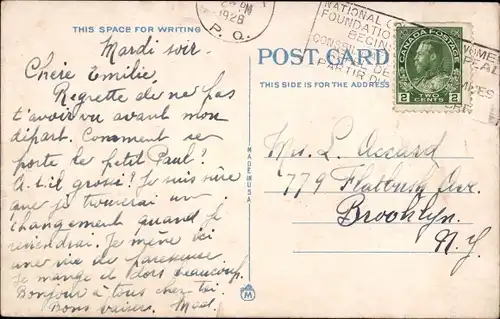 THIS SPACE FOR WRITING
1928
P. Q.
Mardi soir.
Chère Emilie,
Regrette de ne pas
t'avoir vu avant mon
départ. Comment se
porte le petit Paul?
A-t-il grossi? Je suis sûre
que je trouverai un
changement quand je
reviendrai. Je mène ici
une vie de paresseuse.
Je mange et dors beaucoup.
Bonjour à tous chez toi.
Bons baisers. Mad.
MADE IN U.S.A.
M
POST CARD
THIS SIDE IS FOR THE ADDRESS
NATIONAL
FOUNDATION
BEGIN
PARTIR DU
CANADA POSTAGE
2 TWO CENTS 2
L.
779 Flatbush Ave.
Brooklyn.
N.Y.